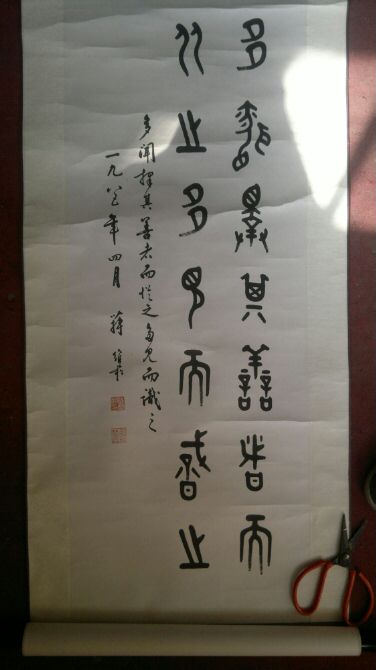 多聞擇其善者而
从之多見而識之
多聞擇其善者而從之多見而識之
一九八三年四月 蔣維崧